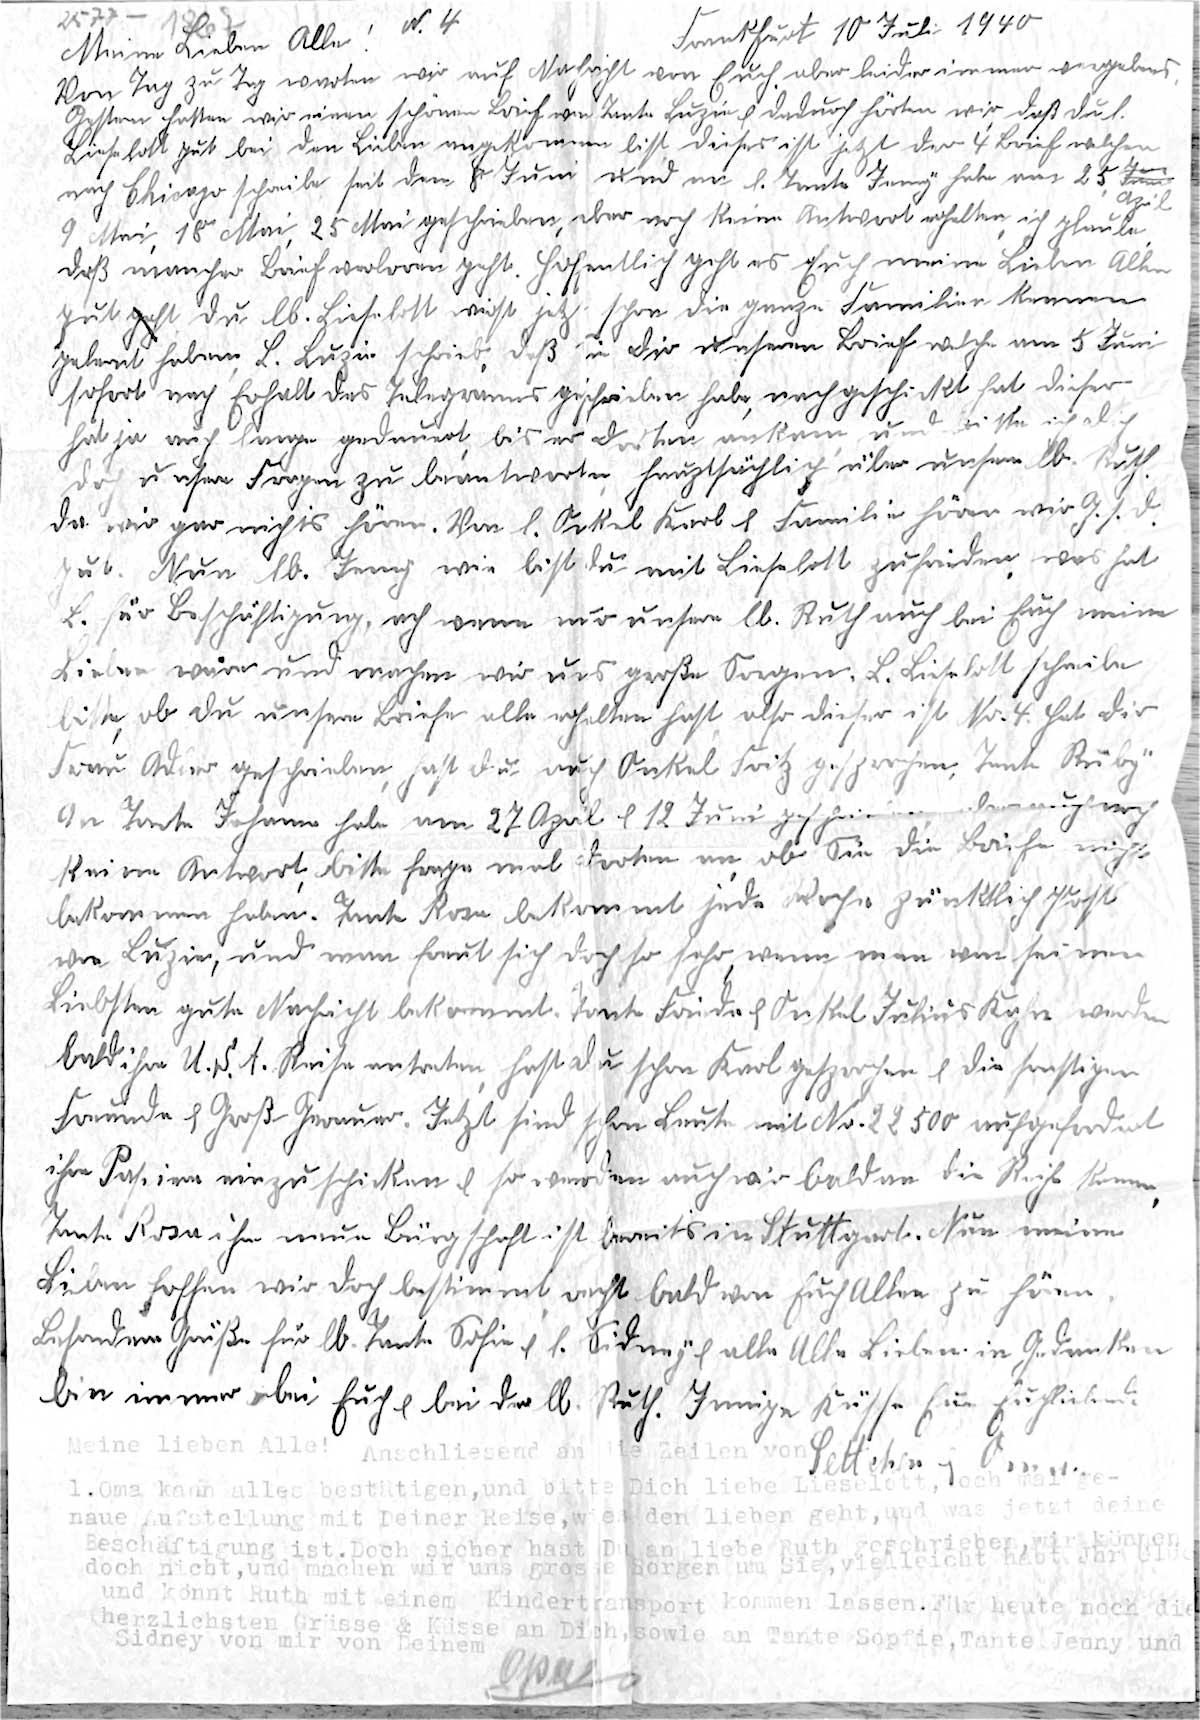 2577 –
Meine Lieben Alle! N. 4 Frankfurt 10 Juli 1940
Von Tag zu Tag warten wir auf Nachricht von Euch, aber leider immer vergebens,
Gestern hatten wir einen schönen Brief von Tante Luzie & dadurch hörten wir, daß du l.
Lieselott gut bei den Lieben angekommen bist, dieses ist jetzt der 4 Brief welchen
nach Chicago schreibe seit dem 5 Juni und an l. Tante Jenny habe am 25 April
9 Mai, 18 Mai, 25 Mai geschrieben, aber noch keine Antwort erhalten, ich glaube,
daß mancher Brief verloren geht. Hoffentlich geht es Euch meine Lieben Allen
gut du lb. Lieselott wirst jetz schon die ganze Familien kennen
gelernt haben, L. Luzie schrieb, daß sie Dir unseren Brief welche am 5 Juni
sofort nach Erhalt des Telegramms geschrieben habe, nachgeschickt hat dieser
hat ja auch lange gedauert, bis er dorten ankam und bitte ich dich
doch unsere Fragen zu beantworten, hauptsächlich über unsere lb. Ruth.
da wir gar nichts hören. Von l. Onkel Karl & Familie hören wir G. s. d.
gut. Nun lb. Jenny wie bist du mit Lieselott zufrieden, was hat
L. für Beschäftigung, ach wenn nur unsere lb. Ruth auch bei Euch meine
Lieben wäre und machen wir uns große Sorgen. L. Lieselott schreibe
bitte, ob du unsere Briefe alle erhalten hast, also dieser ist No. 4. Hat dir
Frau Adler geschrieben, hast du auch Onkel Fritz gesprochen, Tante Ruby
An Tante Johanna habe am 27 April & 12 Juni geschrieben, aber auch noch
keine Antwort, bitte frage mal dorten an, ob Sie die Briefe nicht
bekommen haben. Tante Rosa bekommt jede Woche pünktlich Post
von Luzie, und man freut sich doch so sehr, wenn man von seinen
Liebsten gute Nachricht bekommt. Tante Frieda & Onkel Julius Kahn werden
bald ihre U.S.A. Reise antreten, hast du schon Karl gesprochen & die sonstigen
Freunde & Groß-Gerauer. Jetzt sind schon Leute mit No. 22500 aufgefordert
ihre Papiere einzuschicken & so werden auch wir bald an die Reihe kommen,
Tante Rosa ihre neue Bürgschaft ist bereits in Stuttgart. Nun meine
Lieben hoffen wir doch bestimmt, recht bald von Euch Allen zu hören.
Besondere Grüße für lb. Tante Sofie & l. Sidney & alle Alle Lieben. in Gedanken
bin immer bei Euch & bei der lb. Ruth. Innige Küsse Eure Euch liebende
Settchen & Oma.
Meine lieben Alle! Anschliesend an die Zeilen von
l.Oma kann alles bestätigen,und bitte Dich liebe Lieselott,noch mal ge-
naue Aufstellung mit Deiner Reise,wies den lieben geht,und was jetzt deine
Beschäftigung ist.Doch sicher hast Du an liebe Ruth geschrieben,wir können
doch nicht,und machen wir uns grosse Sorgen um Sie,vielleicht habt Jhr Glück
und könnt Ruth mit einem Kindertransport kommen lassen.Für heute noch die
herzlichsten Grüsse & Küsse an Dich,sowie an Tante Sopfie,Tante Jenny und
Sidney von mir von Deinem
Opa